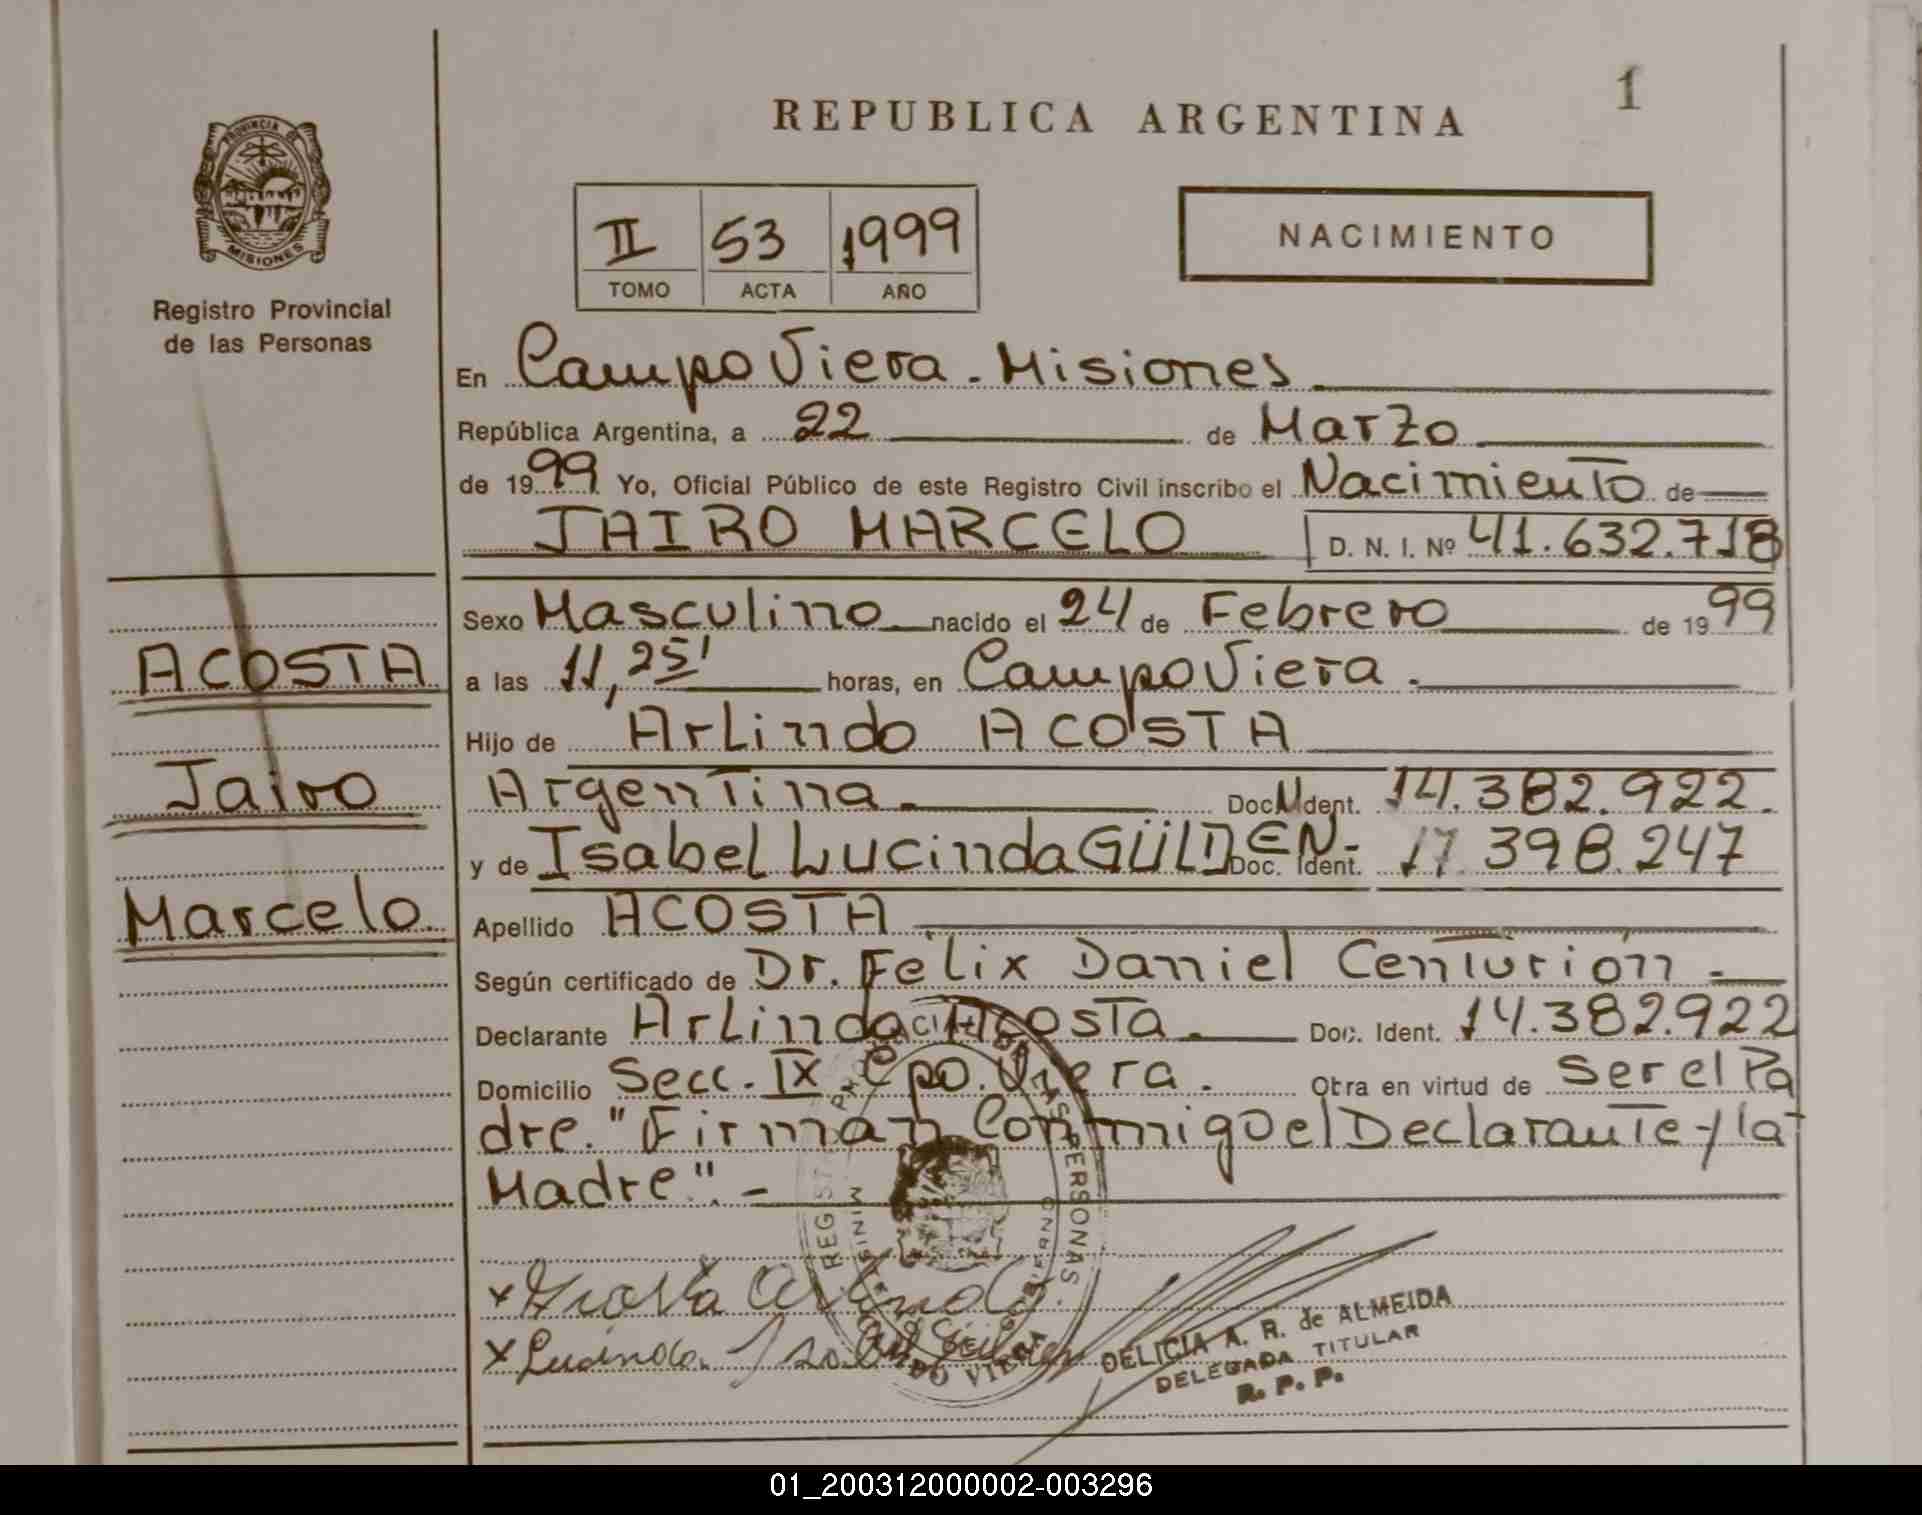 REPUBLICA ARGENTINA
1
PROVINCIA DE
MISIONES
Registro Provincial
de las Personas
II 53 1999
TOMO ACTA AÑO
NACIMIENTO
En Campo Viera - Misiones
República Argentina, a 22 de Marzo
de 1999 Yo, Oficial Público de este Registro Civil inscribo el Nacimiento de
JAIRO MARCELO D. N. I. Nº 41.632.718
Sexo Masculino nacido el 24 de Febrero de 1999
ACOSTA
a las 11,25' horas, en Campo Viera.
Hijo de Arlindo ACOSTA
Jairo
Argentina. Doc. Ident. 14.382.922.
y de Isabel Lucinda GÜLDEN- Doc. Ident. 17.398.247
Marcelo
Apellido ACOSTA
Según certificado de Dr. Félix Daniel Centurión -
Declarante Arlindo Acosta. Doc. Ident. 14.382.922
Domicilio Secc. IX Cpo. Viera. Obra en virtud de ser el Pa
dre. "Firman Conmigo el Declarante y la
Madre". -
REGISTRO PROVINCIAL DE LAS PERSONAS
x Acosta Arlindo.
x Lucinda Isabel
DELICIA A. R. de ALMEIDA
DELEGADA TITULAR
R. P. P.
01_200312000002-003296